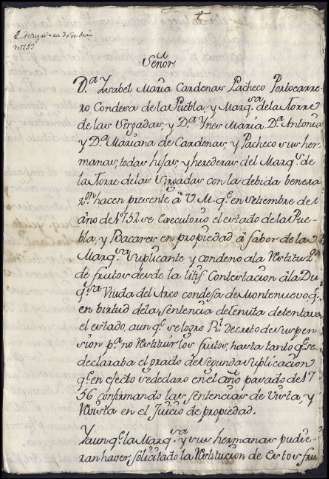 Señor
D.ª Ysabel Maria Cardenas Pacheco Portocarre
ro Condesa de la Puebla, y Marq.sa de la Torre
de las Vergadas, y D.ª Ynes Maria, D.ª Antonia
y D.ª Mariana de Cardenas, y Pacheco sus her
manas, todas hijas, y herederas del Marq.s de
la Torre de las Vergadas con la debida benera
z.on hacen presente à V. M. q.e en Setiembre de el
año de 1752 se Executoriò el estado de la Pue
bla, y Bacares en propiedad à fabor de la
Marq.sa Suplicante y condenò à la Restituz.on
de frutos desde la litis Contestacion à la Du
q.sa Viuda del Arco Condesa de Montenuevo q.e
en birtud de la Sentencia de tenuta detentava
el estado, aunq.e se logrò R.l Decreto de suspen
sion p.a no Restituir los frutos, hasta tanto q.e se
declaraba el grado de Segunda Suplicacion
q.e en efecto se declarò en el año pasado de 17
56 confirmando las sentencias de Vista, y
Revista en el juicio de propiedad.
Y aunq.e la Marq.sa y sus hermanas pudie
ran haver solicitado la Restitucion de estos fru